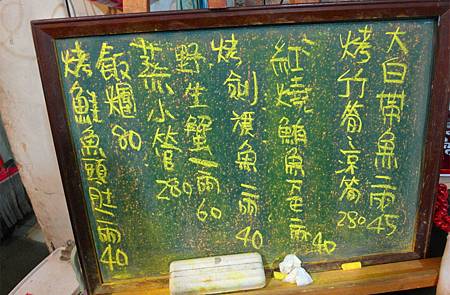 大白帶魚一兩45
烤竹筍、京筍280
紅燒鮪魚下巴一兩40
烤劍濱魚一兩40
野生蟹一兩60
蒸小管280
飯爐80
烤鮭魚頭肚一兩40